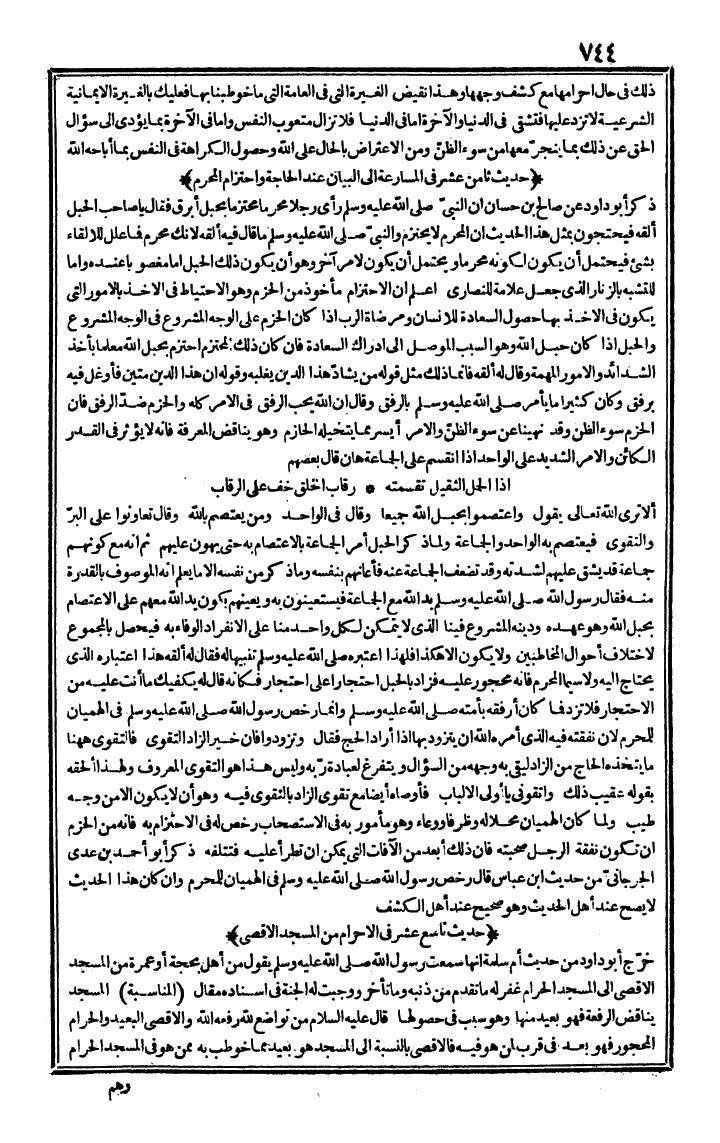 ٧٤٤
ذلك فى حال احرامها مع كشف وجهها وهذا نقيض الغيرة التى فى العامة التى ما خوطبنا بها فعليك بالغيرة الايمانية
الشرعية لا تزد عليها فتشقى فى الدنيا والآخرة اما فى الدنيا فلا تزال متعوب النفس واما فى الآخرة بما يؤدى الى سؤال
الحق عن ذلك بما ينجرّ معها من سوء الظنّ ومن الاعتراض بالحال على الله وحصول الكراهة فى النفس بما أباحه الله
﴿حديث ثامن عشر فى المسارعة الى البيان عند الحاجة واحتزام المحرم﴾
ذكر أبو داود عن صالح بن حسان ان النبىّ صلى الله عليه وسلم رأى رجلا محرما محتزما بحبل أبرق فقال يا صاحب الحبل
ألقه فيحتجون بمثل هذا الحديث ان المحرم لا يحتزم والنبىّ صلى الله عليه وسلم ما قال فيه ألقه لانك محرم فما علل للالقاء
بشئ فيحتمل أن يكون لكونه محرما ويحتمل أن يكون لامر آخر وهو أن يكون ذلك الحبل اما مغصوبا عنده واما
للتشبه بالزنار الذى جعل علامة للنصارى اعلم ان الاحتزام مأخوذ من الحزم وهو الاحتياط فى الاخذ بالامور التى
يكون فى الاخذ بها حصول السعادة للانسان ومرضاة الرب اذا كان الحزم على الوجه المشروع فى الوجه المشروع
والحبل اذا كان حبل الله وهو السبب الموصل الى ادراك السعادة فان كان ذلك المحتزم احتزم بحبل الله معلما بأخذ
الشدائد والامور المهمة وقال له ألقه فانما ذلك مثل قوله من يشادّ هذا الدين يغلبه وقوله ان هذا الدين متين فأوغل فيه
برفق وكان كثيرا ما يأمر صلى الله عليه وسلم بالرفق وقال ان الله يحب الرفق فى الامر كله والحزم ضدّ الرفق فان
الحزم سوء الظن وقد نهينا عن سوء الظنّ والامر أيسر مما يتخيله الحازم وهو يناقض المعرفة فانه لا يؤثر فى القدر
الكائن والامر الشديد على الواحد اذا انقسم على الجماعة هان قال بعضهم
اذا الحمل الثقيل تقسمته * رقاب الخلق خف على الرقاب
ألا ترى الله تعالى يقول واعتصموا بحبل الله جميعا وقال فى الواحد ومن يعتصم بالله وقال تعاونوا على البرّ
والتقوى فيعتصم به الواحد والجماعة ولما ذكر الحبل أمر الجماعة بالاعتصام به حتى يهون عليهم ثم انه مع كونهم
جماعة قد يشق عليهم لشدته وقد تضعف الجماعة عنه فأعانهم بنفسه وما ذكر من نفسه الا ما يعلم انه الموصوف بالقدرة
منه فقال رسول الله صلى الله عليه وسلم يد الله مع الجماعة فيستعينون به ويعينهم بكون يد الله معهم على الاعتصام
بحبل الله وهو عهده ودينه المشروع فينا الذى لا يتمكن لكل واحد منا على الانفراد الوفاء به فيحصل بالمجموع
لاختلاف أحوال المخاطبين ولا يكون الا هكذا فلهذا اعتبره صلى الله عليه وسلم تنبيها له فقال له ألقه هذا اعتباره الذى
يحتاج اليه ولا سيما المحرم فانه محجور عليه فزاد بالحبل احتجارا على احتجار فكانه قال له يكفيك ما أنت عليه من
الاحتجار فلا تزد فما كان أرفقه بأمته صلى الله عليه وسلم وانما رخص رسول الله صلى الله عليه وسلم فى الهميان
للمحرم لان نفقته فيه الذى أمره الله ان يتزود بها اذا أراد الحج فقال وتزودوا فان خير الزاد التقوى فالتقوى ههنا
ما يتخذه الحاج من الزاد ليقى به وجهه من السؤال ويتفرغ لعبادة ربه وليس هذا هو التقوى المعروف ولهذا ألحقه
بقوله عقيب ذلك واتقونى يا أولى الالباب فأوصاه أيضا مع تقوى الزاد بالتقوى فيه وهو أن لا يكون الا من وجه
طيب ولما كان الهميان محلا له وظرفا ووعاء وهو مأمور به فى الاستصحاب رخص له فى الاحتزام به فانه من الحزم
ان تكون نفقة الرجل صحبته فان ذلك أبعد من الآفات التى يمكن ان تطرأ عليه فتتلفه ذكر أبو أحمد بن عدى
الجرجانىّ من حديث ابن عباس قال رخص رسول الله صلى الله عليه وسلم فى الهميان للمحرم وان كان هذا الحديث
لا يصح عند أهل الحديث وهو صحيح عند أهل الكشف
﴿حديث تاسع عشر فى الاحرام من المسجد الاقصى﴾
خرّج أبو داود من حديث أم سلمة انها سمعت رسول الله صلى الله عليه وسلم يقول من أهل بحجة أو عمرة من المسجد
الاقصى الى المسجد الحرام غفر له ما تقدم من ذنبه وما تأخر ووجبت له الجنة فى اسناده مقال (المناسبة) المسجد
يناقض الرفعة فهو بعيد منها وهو سبب فى حصولها قال عليه السلام من تواضع لله رفعه الله والاقصى البعيد والحرام
المحجور فهو بعد فى قرب لمن هو فيه فالاقصى بالنسبة الى المسجد هو بعيد مما خوطب به ممن هو فى المسجد الحرام
وهم